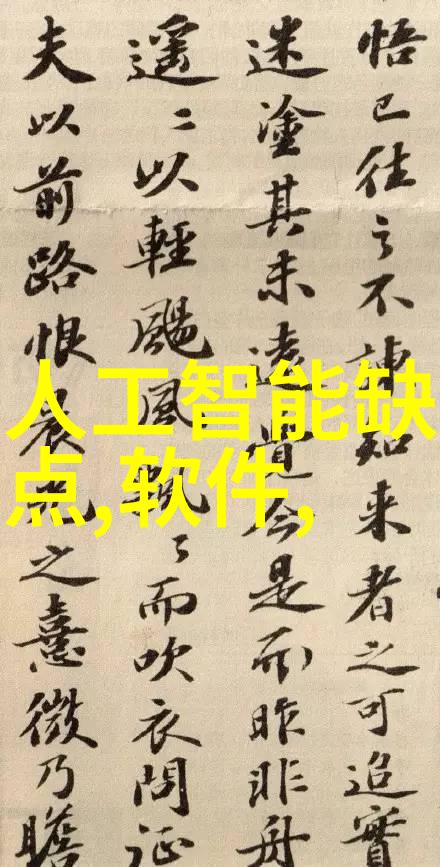 悟已往之不諫知来者之可追實
迷塗其未遠覺今是而昨非舟
遥〻以輕颺風飄〻而吹衣問征
夫以前路恨晨光之熹微乃瞻
人工智能缺
点,软件,